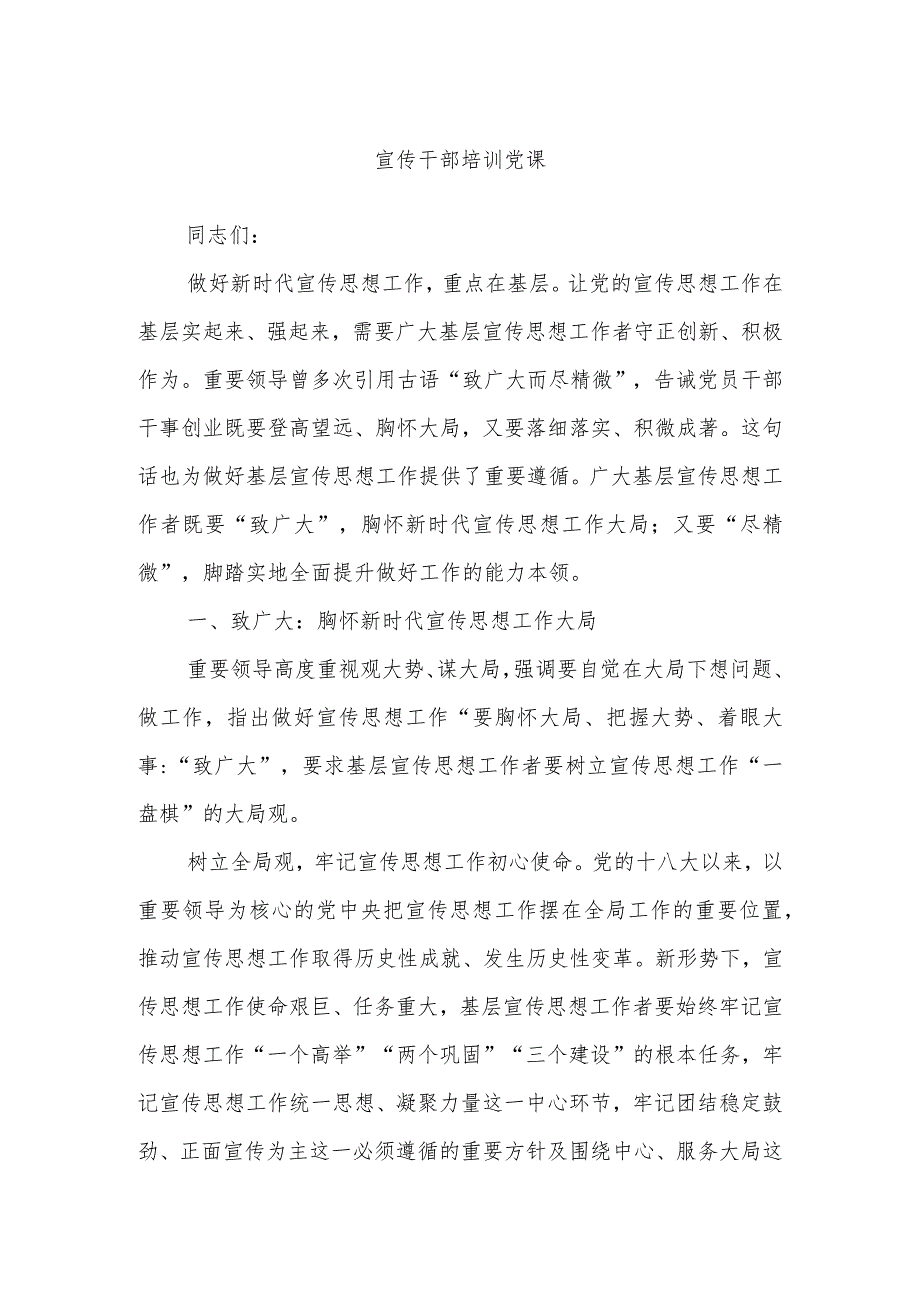 宣传干部培训党课
同志们：
做好新时代宣传思想工作，重点在基层。让党的宣传思想工作在
基层实起来、强起来，需要广大基层宣传思想工作者守正创新、积极
作为。重要领导曾多次引用古语“致广大而尽精微”，告诫党员干部
干事创业既要登高望远、胸怀大局，又要落细落实、积微成著。这句
话也为做好基层宣传思想工作提供了重要遵循。广大基层宣传思想工
作者既要“致广大”，胸怀新时代宣传思想工作大局；又要“尽精
微”，脚踏实地全面提升做好工作的能力本领。
一、致广大：胸怀新时代宣传思想工作大局
重要领导高度重视观大势、谋大局，强调要自觉在大局下想问题、
做工作，指出做好宣传思想工作“要胸怀大局、把握大势、着眼大
事：“致广大”，要求基层宣传思想工作者要树立宣传思想工作“一
盘棋”的大局观。
树立全局观，牢记宣传思想工作初心使命。党的十八大以来，以
重要领导为核心的党中央把宣传思想工作摆在全局工作的重要位置，
推动宣传思想工作取得历史性成就、发生历史性变革。新形势下，宣
传思想工作使命艰巨、任务重大，基层宣传思想工作者要始终牢记宣
传思想工作“一个高举”“两个巩固”“三个建设”的根本任务，牢
记宣传思想工作统一思想、凝聚力量这一中心环节，牢记团结稳定鼓
劲、正面宣传为主这一必须遵循的重要方针及围绕中心、服务大局这